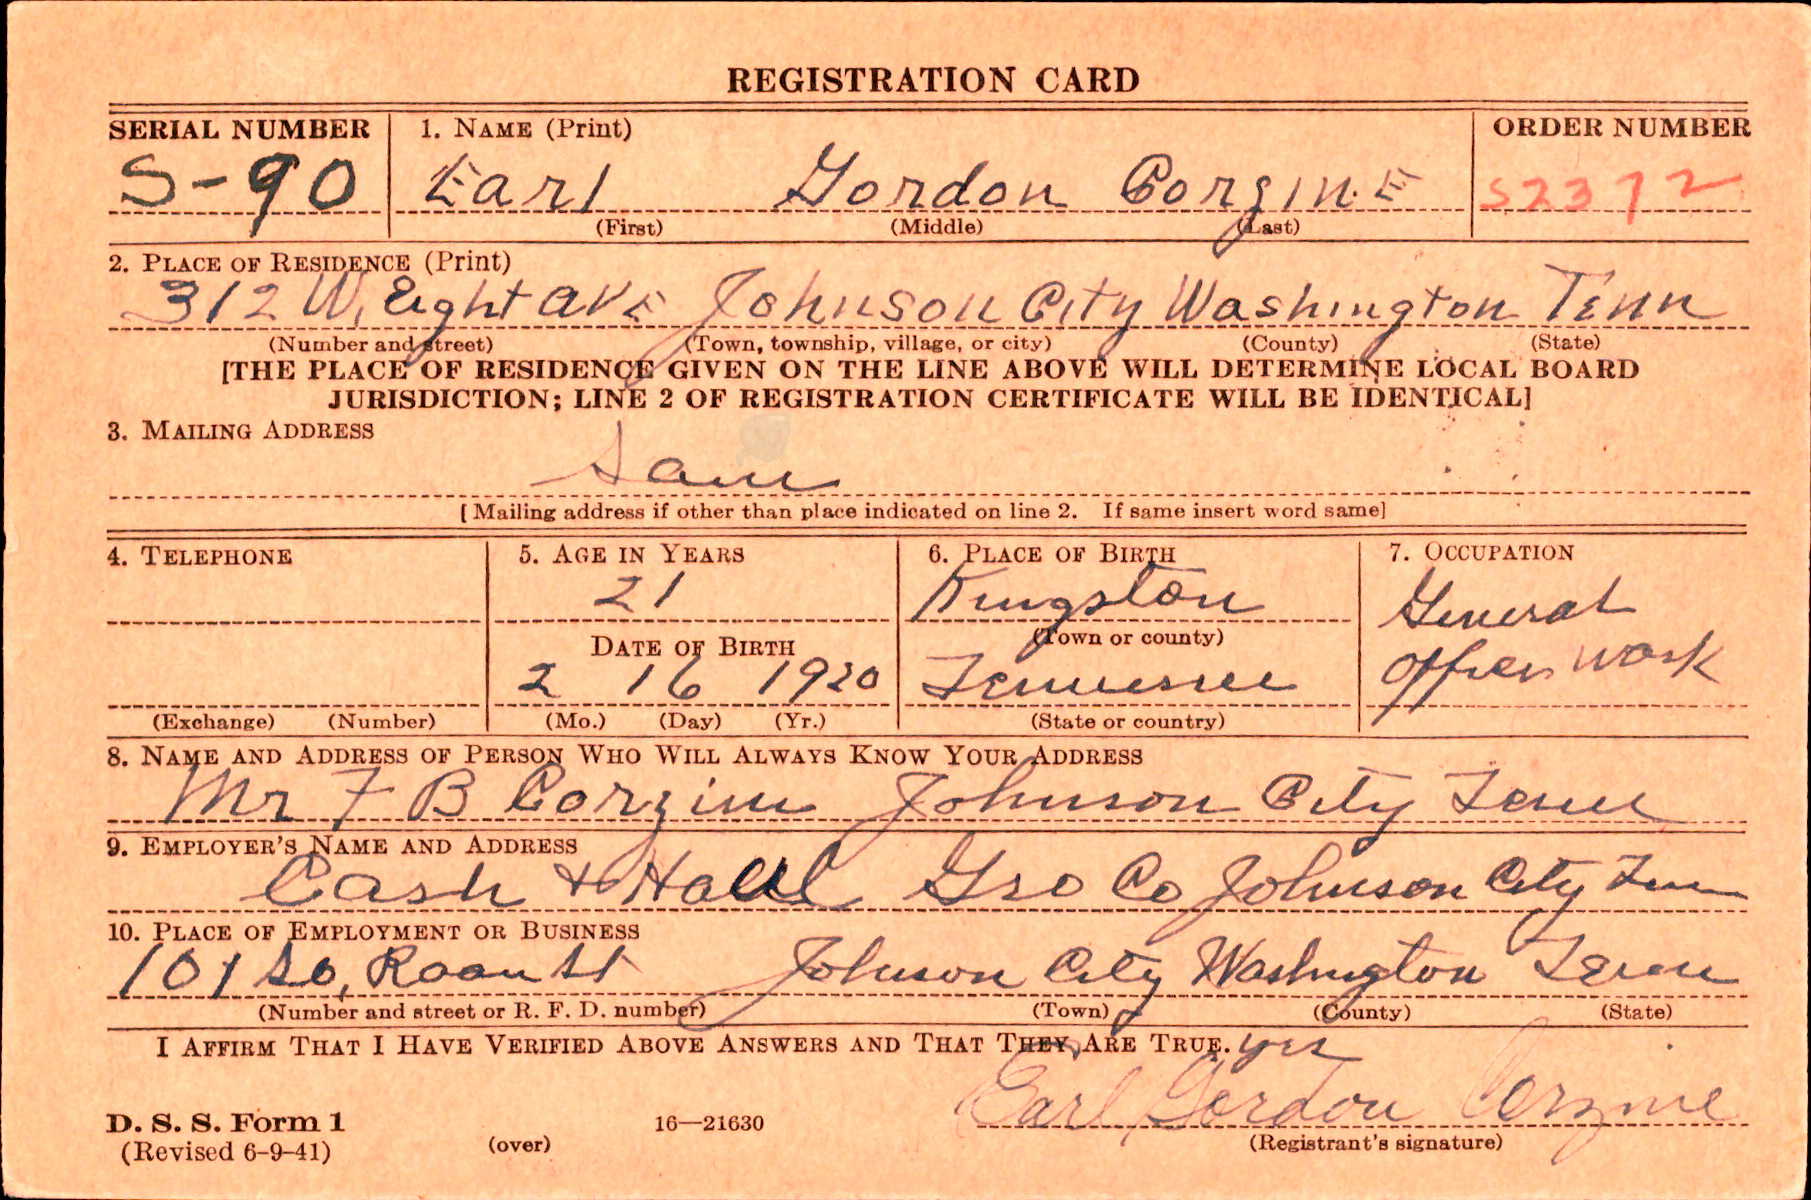 REGISTRATION CARD
SERIAL NUMBER 1. NAME (Print) ORDER NUMBER
S-90 Earl Gordon CorzinE S2372
(First) (Middle) (Last)
2. PLACE OF RESIDENCE (Print)
312 W. Eight avE Johnson City Washington Tenn
(Number and street) (Town, township, village, or city) (County) (State)
[THE PLACE OF RESIDENCE GIVEN ON THE LINE ABOVE WILL DETERMINE LOCAL BOARD
JURISDICTION; LINE 2 OF REGISTRATION CERTIFICATE WILL BE IDENTICAL]
3. MAILING ADDRESS
Sam
[Mailing address if other than place indicated on line 2. If same insert word same]
4. TELEPHONE 5. AGE IN YEARS 6. PLACE OF BIRTH 7. OCCUPATION
21 Kingston General
DATE OF BIRTH (Town or county)
2 16 1920 Tennessee Office Work
(Exchange) (Number) (Mo.) (Day) (Yr.) (State or country)
8. NAME AND ADDRESS OF PERSON WHO WILL ALWAYS KNOW YOUR ADDRESS
Mr F B Corzine Johnson City Tenn
9. EMPLOYER'S NAME AND ADDRESS
Cash + Hall Gro Co Johnson City Tenn
10. PLACE OF EMPLOYMENT OR BUSINESS
101 So, Roan St Johnson City Washington Tenn
(Number and street or R. F. D. number) (Town) (County) (State)
I AFFIRM THAT I HAVE VERIFIED ABOVE ANSWERS AND THAT THEY ARE TRUE. yes
Earl Gordon Corzine
D. S. S. Form 1 16—21630
(Revised 6-9-41) (over) (Registrant's signature)